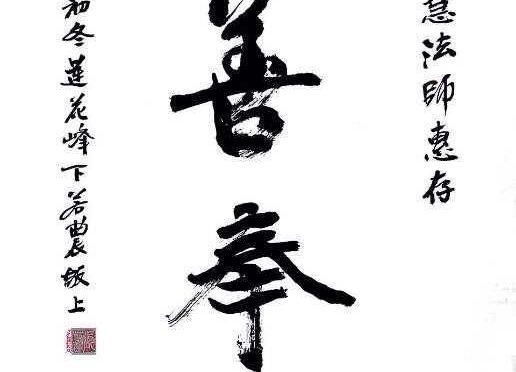 慧法師惠存
善舉
初冬蓮花峰下若農敬上